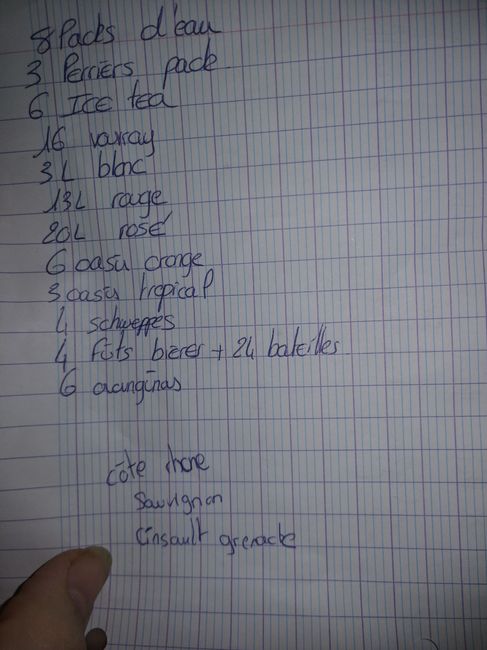 8 Packs d'eau
3 Perriers pack
6 Ice tea
16 vouvray
3L blanc
13L rouge
20L rosé
6 oasis orange
3 oasis tropical
4 schweppes
4 fûts bieres + 24 bateilles
6 oranginas
côte rhone
Sauvignon
Cinsault grenache